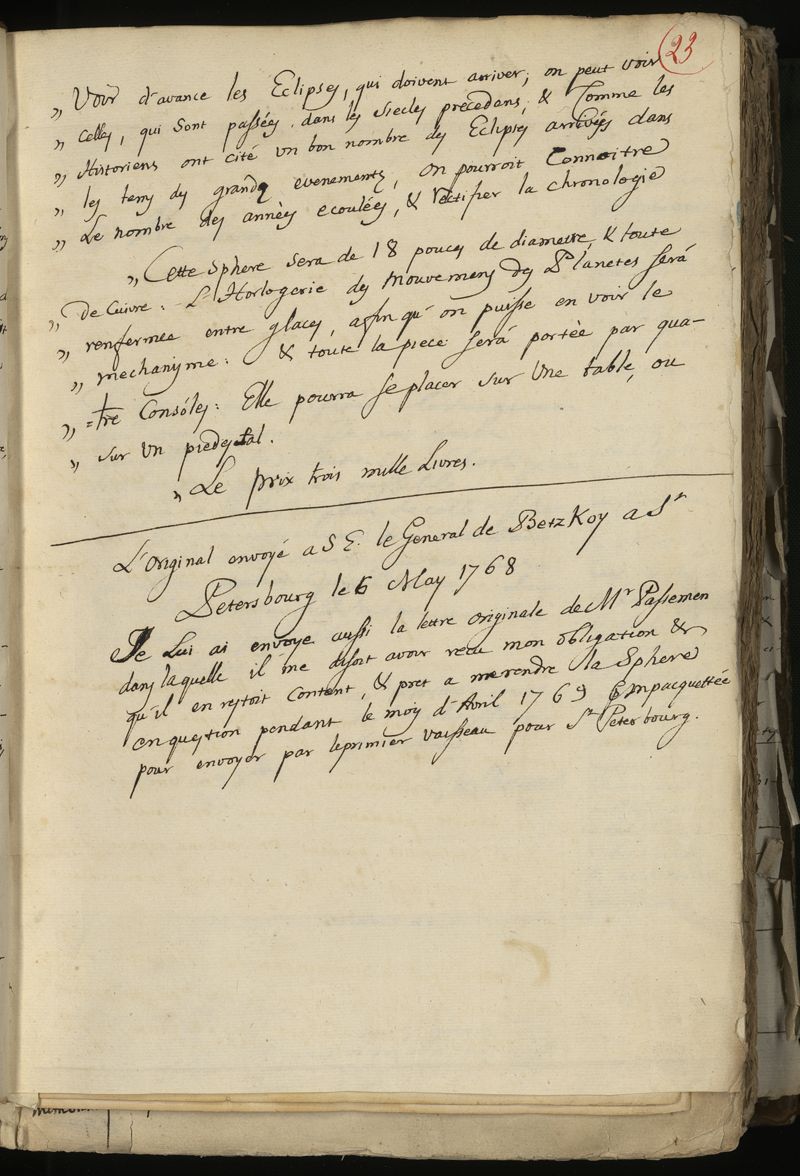 23
„ Voir d'avance les Eclipses, qui doivent arriver; on peut voir
„ Celles, qui sont passées, dans les siecles precedans, & Comme les
„ Historiens ont cité un bon nombre des Eclipses arrivées dans
„ les tems des grands evenements, on pourroit Connoitre
„ Le nombre des années ecoulées, & rectifier la chronologie
„ Cette Sphere sera de 18 pouces de diametre & toute
„ de Cuivre: L'Horlogerie des Mouvemens des Planetes será
„ renfermée entre glaces, afin qu'on puisse en voir le
„ mechanisme: & toute la piece será portée par qua-
„ =tre Consóles: Elle pourra se placer sur Une table, ou
„ sur un piedestal.
„ Le prix trois mille Livres.
L'Original envoyé a S E. le General de Betzkoy a Sr
Petersbourg le 6 May 1768
Je Lui ai envoye aussi la lettre originale de Mr Passemen
dans laquelle il me disoit avoir recu mon obligation &
qu'il en restoit Content, & pret a me rendre la Sphere
en question pendant le mois d'Avril 1769 Empacquettée
pour envoyer par le primier vaisseau pour St Peterbourg.